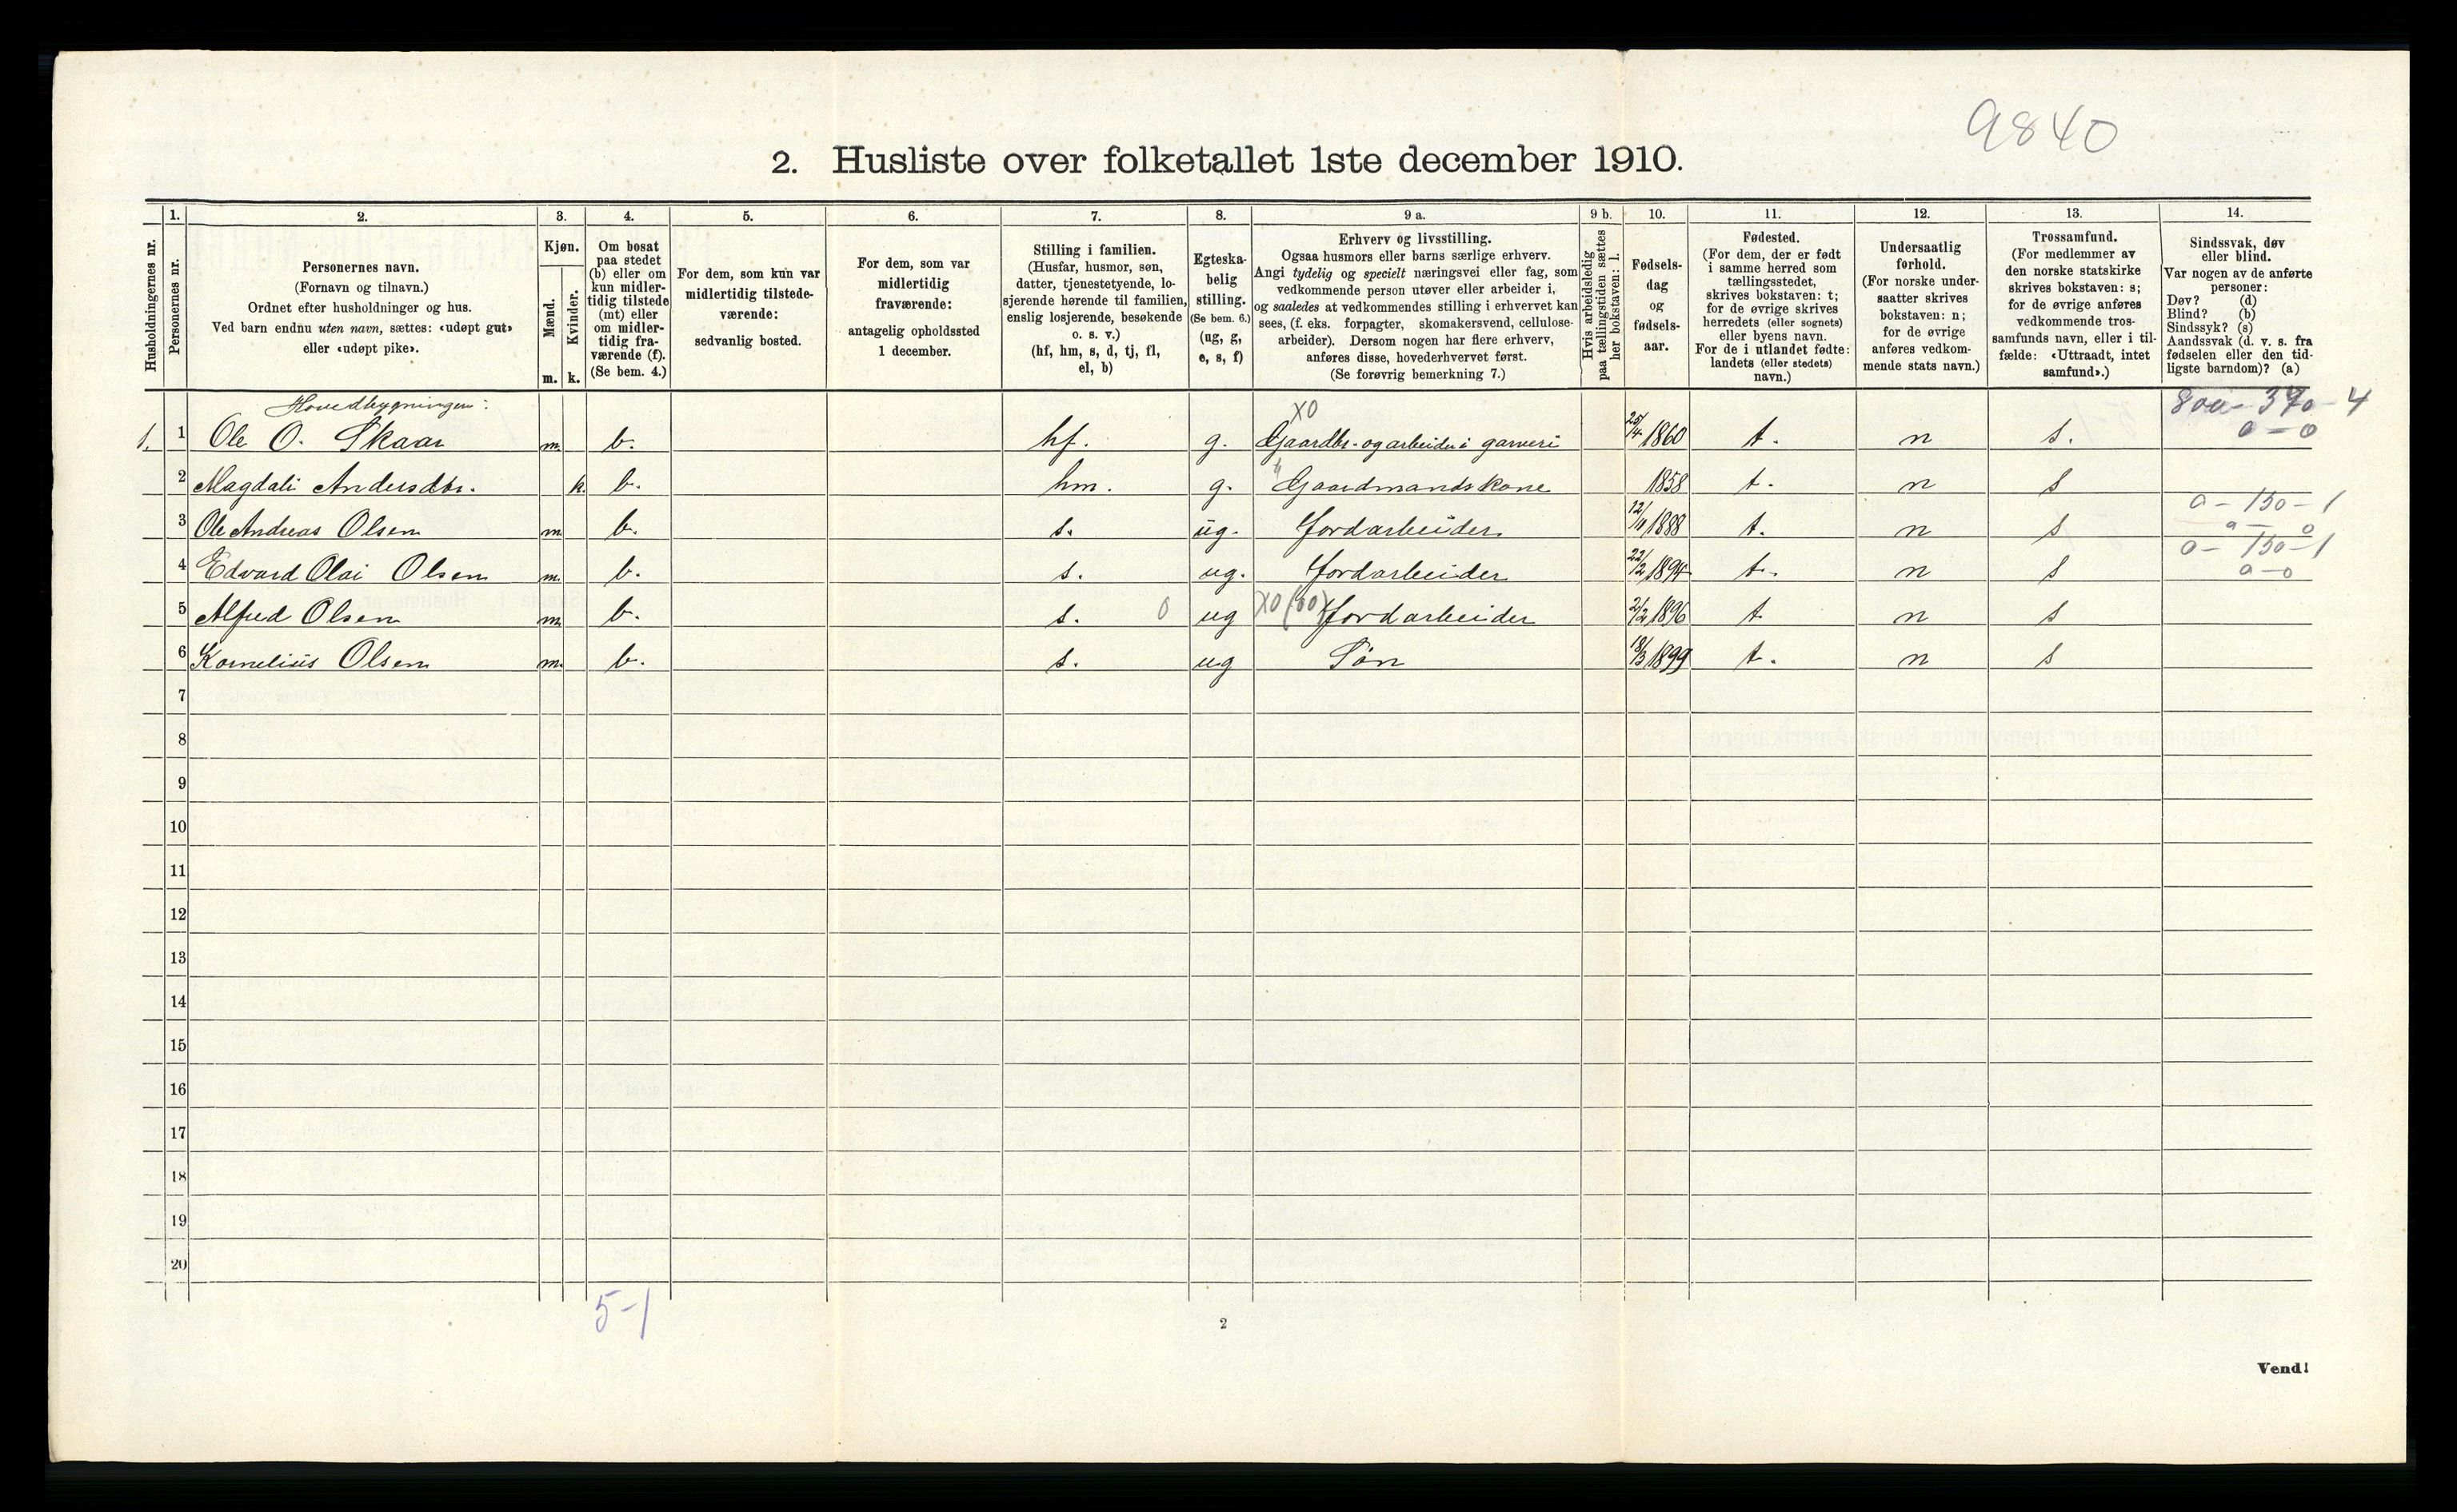 9840
2. Husliste over folketallet 1ste december 1910.
Husholdningernes nr.
1.
Personernes nr.
2.
Personernes navn.
(Fornavn og tilnavn.)
Ordnet efter husholdninger og hus.
Ved barn endnu uten navn, sættes: «udøpt gut»
eller «udøpt pike».
3.
Kjøn.
Mænd.
Kvinder.
m. k.
4.
Om bosat
paa stedet
(b) eller om
kun midler-
tidig tilstede
(mt) eller
om midler-
tidig fra-
værende (f).
(Se bem. 4.)
5.
For dem, som kun var
midlertidig tilstede-
værende:
sedvanlig bosted.
6.
For dem, som var
midlertidig
fraværende:
antagelig opholdssted
1 december.
7.
Stilling i familien.
(Husfar, husmor, søn,
datter, tjenestetyende, lo-
sjerende hørende til familien,
enslig losjerende, besøkende
o. s. v.)
(hf, hm, s, d, tj, fl,
el, b)
8.
Egteska-
belig
stilling.
(Se bem. 6.)
(ug, g,
e, s, f)
9 a.
Erhverv og livsstilling.
Ogsaa husmors eller barns særlige erhverv.
Angi tydelig og specielt næringsvei eller fag, som
vedkommende person utøver eller arbeider i,
og saaledes at vedkommendes stilling i erhvervet kan
sees, (f. eks. forpagter, skomakersvend, cellulose-
arbeider). Dersom nogen har flere erhverv,
anføres disse, hovederhvervet først.
(Se forøvrig bemerkning 7.)
9 b.
Hvis arbeidsledig
paa tællingstiden sættes
her bokstaven: l.
10.
Fødsels-
dag
og
fødsels-
aar.
11.
Fødested.
(For dem, der er født
i samme herred som
tællingsstedet,
skrives bokstaven: t;
for de øvrige skrives
herredets (eller sognets)
eller byens navn.
For de i utlandet fødte:
landets (eller stedets)
navn.)
12.
Undersaatlig
forhold.
(For norske under-
saatter skrives
bokstaven: n;
for de øvrige
anføres vedkom-
mende stats navn.)
13.
Trossamfund.
(For medlemmer av
den norske statskirke
skrives bokstaven: s;
for de øvrige anføres
vedkommende tros-
samfunds navn, eller i til-
fælde: «Uttraadt, intet
samfund».)
14.
Sindssvak, døv
eller blind.
Var nogen av de anførte
personer:
Døv? (d)
Blind? (b)
Sindssyk? (s)
Aandssvak (d. v. s. fra
fødselen eller den tid-
ligste barndom)? (a)
Hovedbygningen:
XO
1. 1 Ole O. Skaar m. b. hf. g. Gaardbr. og arbeider i garveri 25/4 1860 t. n s. 0 - 0
2 Magdali Andersdtr. k. b. hm. g. Gaardmandskone 1858 t. n s
0 - 150 - 1
3 Ole Andreas Olsen m b. s. ug. Jordarbeider 1888 t. n s
0 - 150 - 1
4 Edvard Olai Olsen m. b. s. ug. Jordarbeider 22/2 t. n s 0 - 0
5 Alfred Olsen m b. s. 0 ug XO Jordarbeider 2/2 1896 t. n s
6 Kornelius Olsen m. b. s. ug Søn 18/3 1899 t. n s
7
8
9
10
11
12
13
14
15
16
17
18
19
20
5-1
2
Vend!